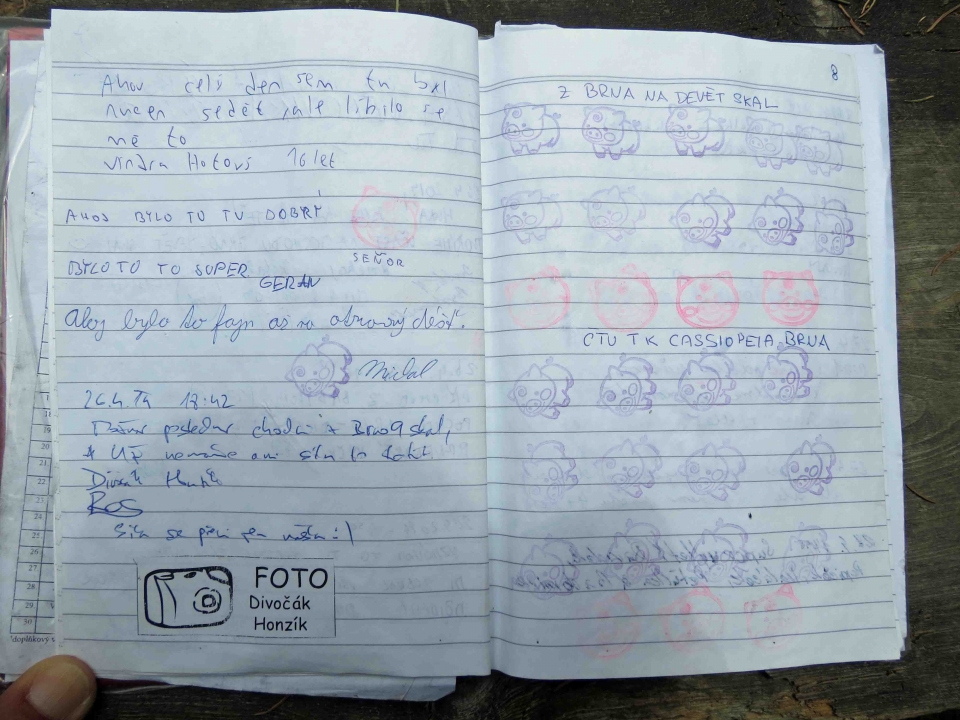 Ahoj celý den sem tu byl
nucen sedět, ale líbilo se
mě to
Jindra Hotový 16 let
AHOJ BYLO TO TU DOBRÝ
SEŇOR
BYLO TO TO SUPER
GERAN
Ahoj bylo to fajn až na otravný déšť.
Michal
26.4. 14 18:42
poslední chodci z Brno 9 skal,
A už nemáme ani sílu to
Divočák Honzík
Ros
Síla se přeci jen našla :)
FOTO
Divočák
Honzík
8
Z BRNA NA DEVĚT SKAL
CTU TK CASSIOPEIA BRNA